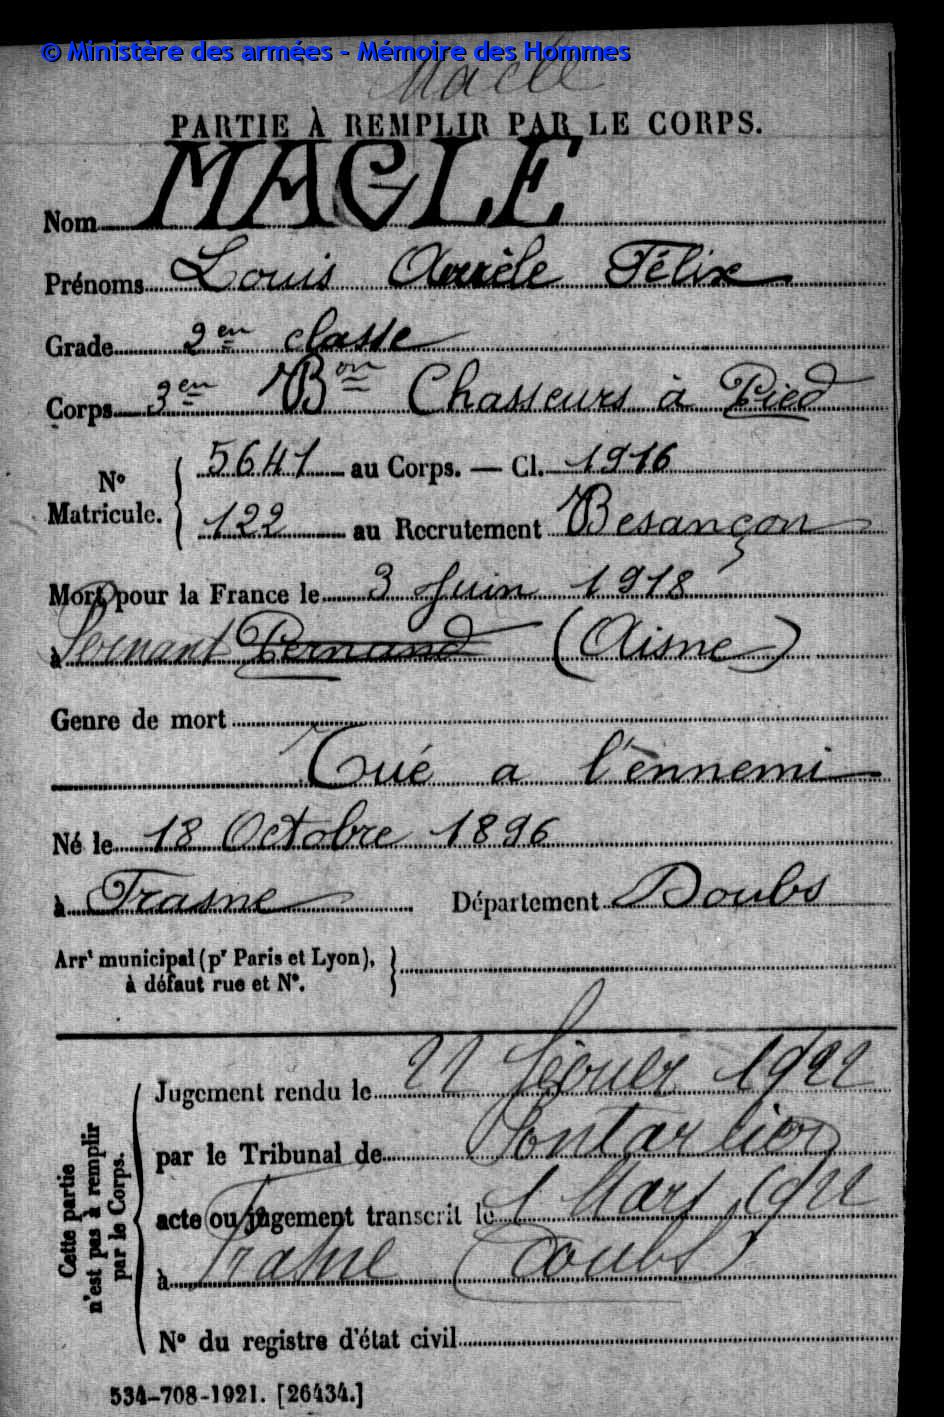 © Ministère des armées - Mémoire des Hommes
Macle
PARTIE À REMPLIR PAR LE CORPS.
Nom MACLE
Prénoms Louis Aurèle Félix
Grade 2en classe
Corps 3en Bon Chasseurs à Pied
No Matricule. { 5641 au Corps. — Cl. 1916
122 au Recrutement Besançon
Mort pour la France le 3 Juin 1918
à Pernant Pernand (Aisne)
Genre de mort
Tué a l'ennemi
Né le 18 Octobre 1896
à Frasne Département Doubs
Arrt municipal (pr Paris et Lyon),
à défaut rue et No. }
Cette partie n'est pas à remplir par le Corps.
Jugement rendu le 22 février 1922
par le Tribunal de Pontarlier
acte ou jugement transcrit le 1 Mars 1922
à Frasne (Doubs)
No du registre d'état civil
534-708-1921. [26434.]